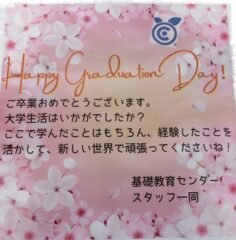 Happy Graduation Day!
ご卒業おめでとうございます。
大学生活はいかがでしたか？
ここで学んだことはもちろん、経験したことを
活かして、新しい世界で頑張ってくださいね！
基礎教育センター
スタッフ一同